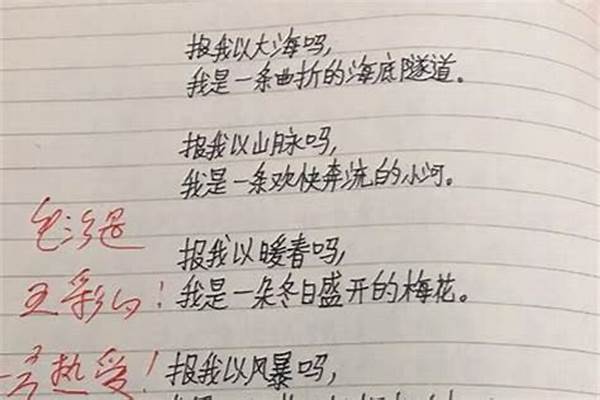 报我以大海吗,
我是一条曲折的海底隧道。
报我以山脉吗,
我是一条欢快奔流的小河。
报我以暖春吗,
我是一朵冬日盛开的梅花。
报我以风暴吗,
五彩的!
热爱!